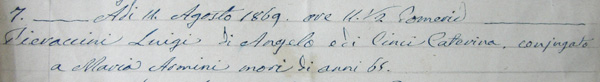 7. Adi 11. Agosto 1869. ore 11.1/2 Pomerid
Pieraccini Luigi di Angelo e di Cinci Caterina. conjugato
a Maria Armini morì di anni 65.